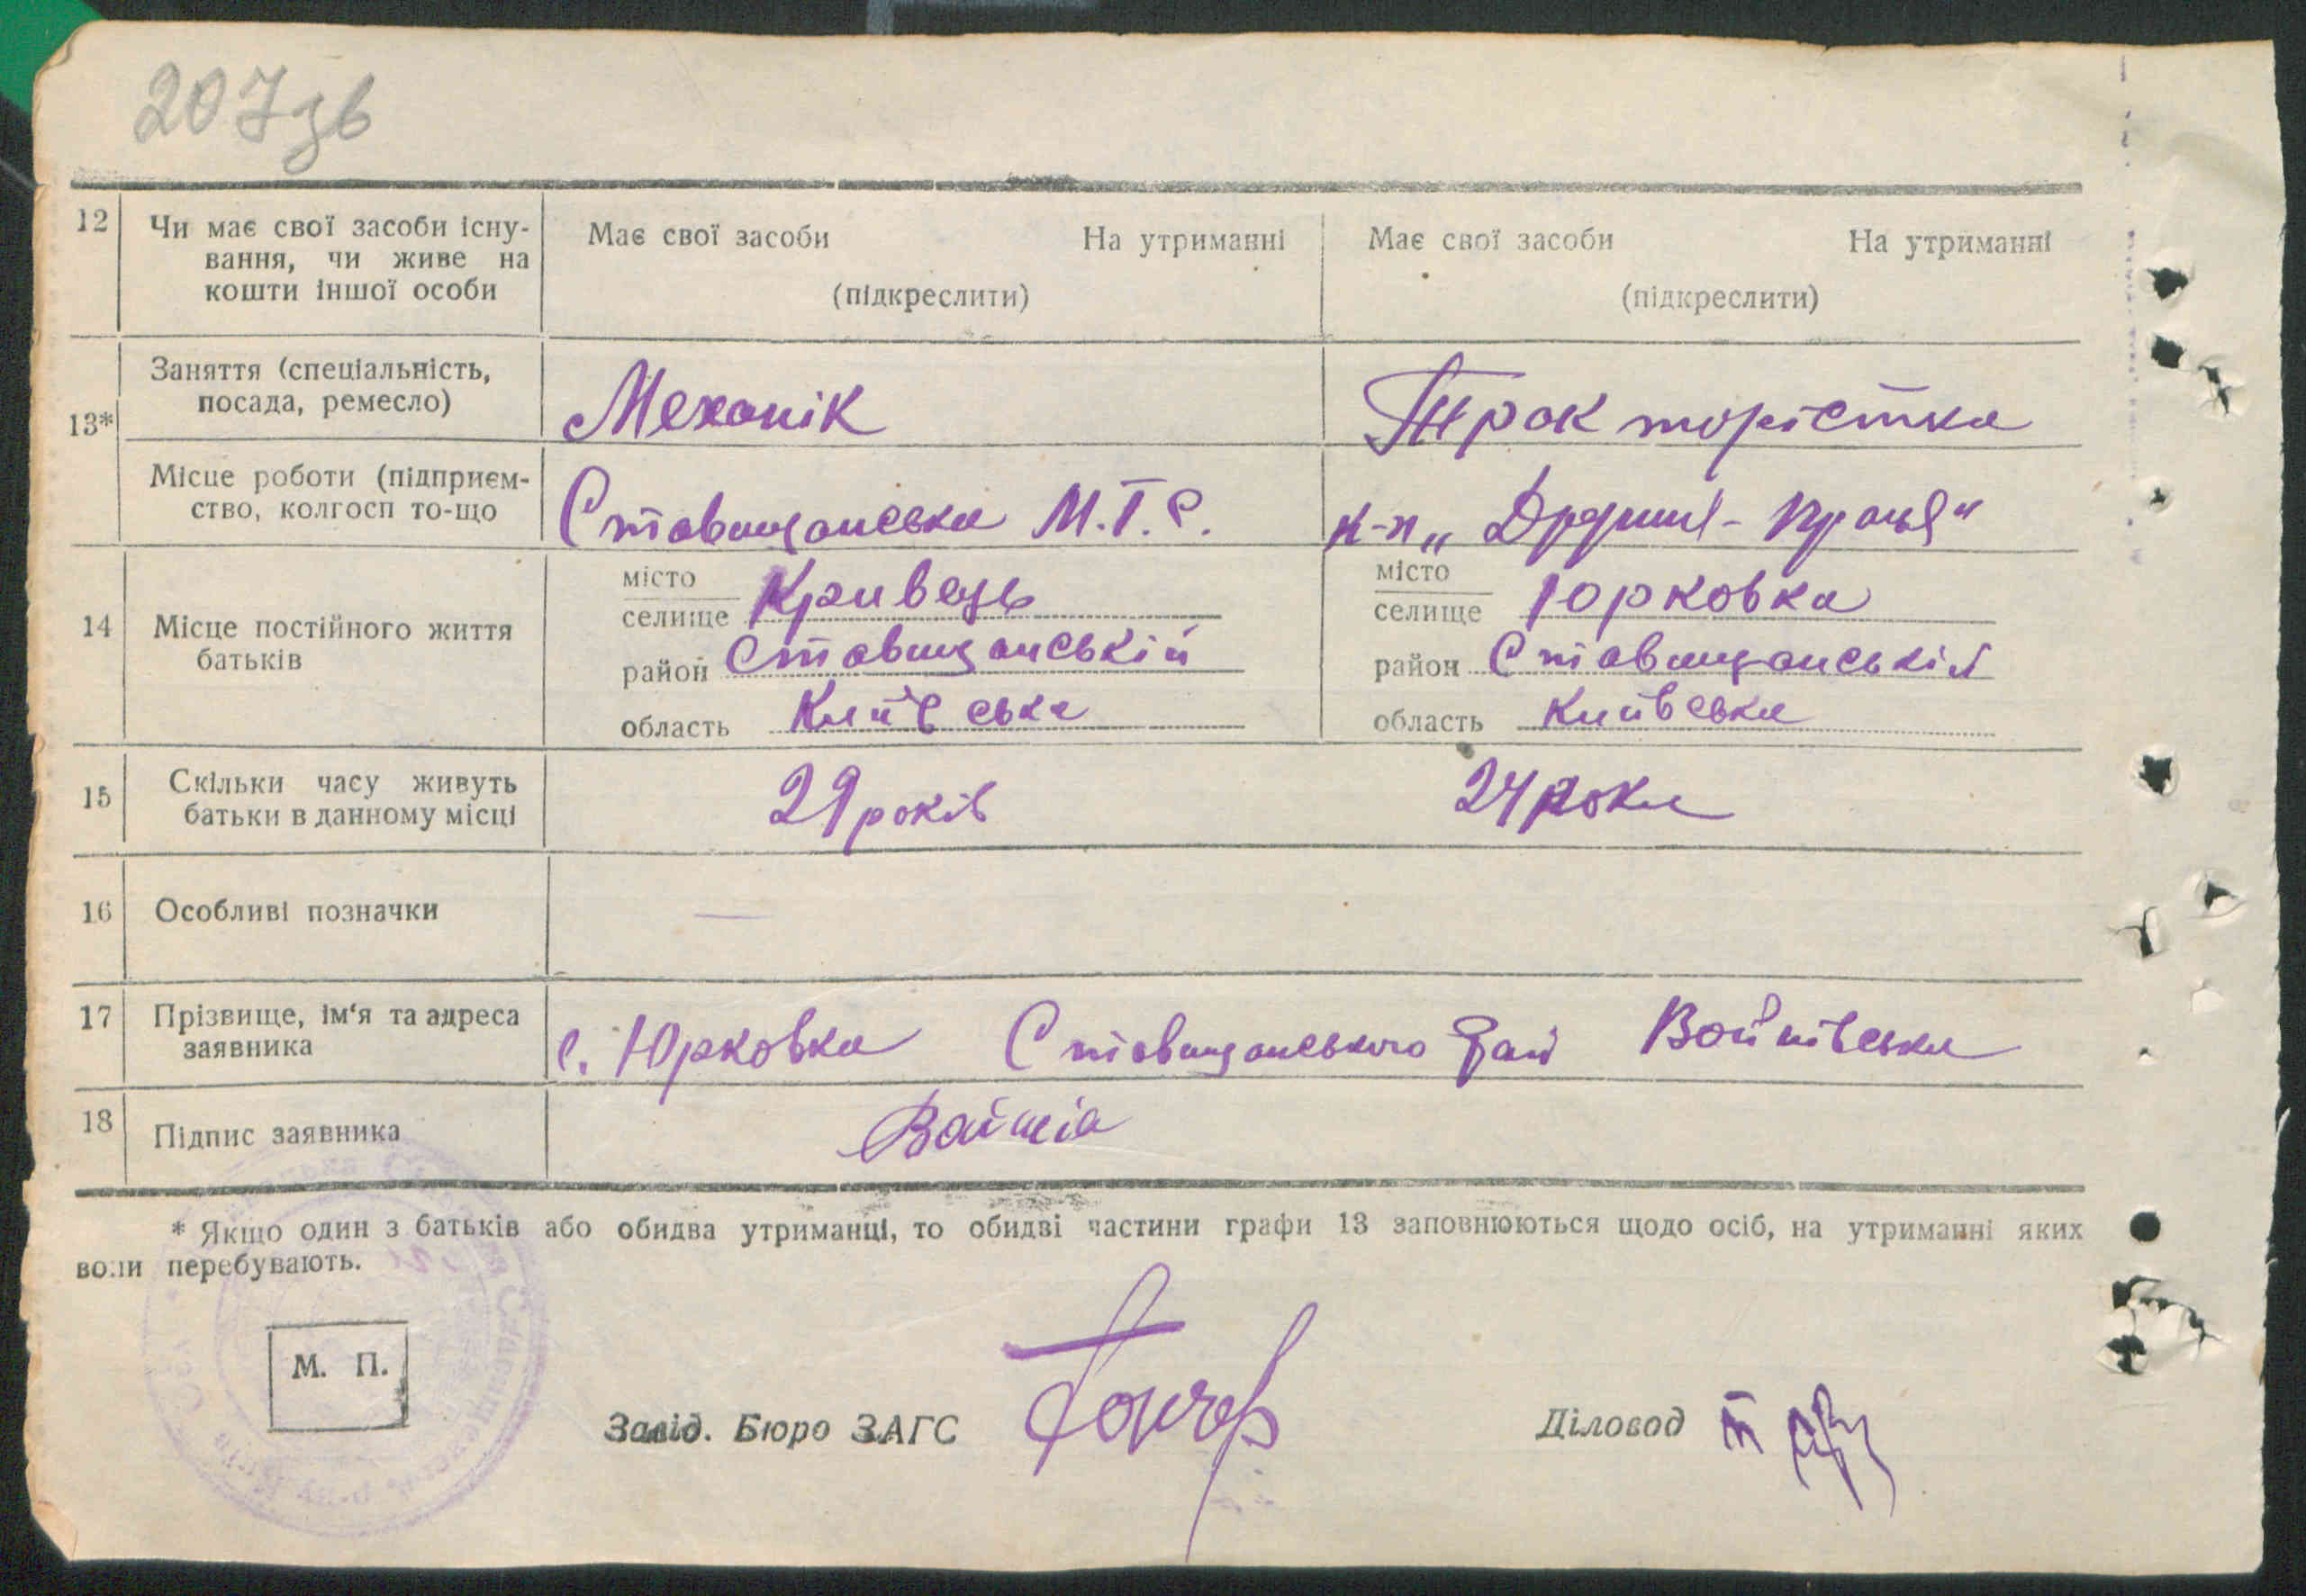 207зв
12 Чи має свої засоби існу- Має свої засоби На утриманні Має свої засоби На утриманні
вання, чи живе на
кошти іншої особи (підкреслити) (підкреслити)
Заняття (спеціальність,
посада, ремесло) Механік Трокторістка
13*
Місце роботи (підприєм-
ство, колгосп то-що Ставищанська М.Т.С. к-п „ Дружня - Праця"
місто місто
селище Кривець селище Юрковка
14 Місце постійного життя
батьків район Ставищанській район Ставищанській
область Київська область Київська
15 Скільки часу живуть 29 років 24 роки
батьки в данному місці
16 Особливі позначки —
17 Прізвище, ім'я та адреса
заявника с. Юрковка Ставищанського Рай Войтівська
18 Підпис заявника
* Якщо один з батьків або обидва утриманці, то обидві частини графи 13 заповнюються щодо осіб, на утриманні яких
вони перебувають.
М. П.
Завід. Бюро ЗАГС Гончар
Діловод